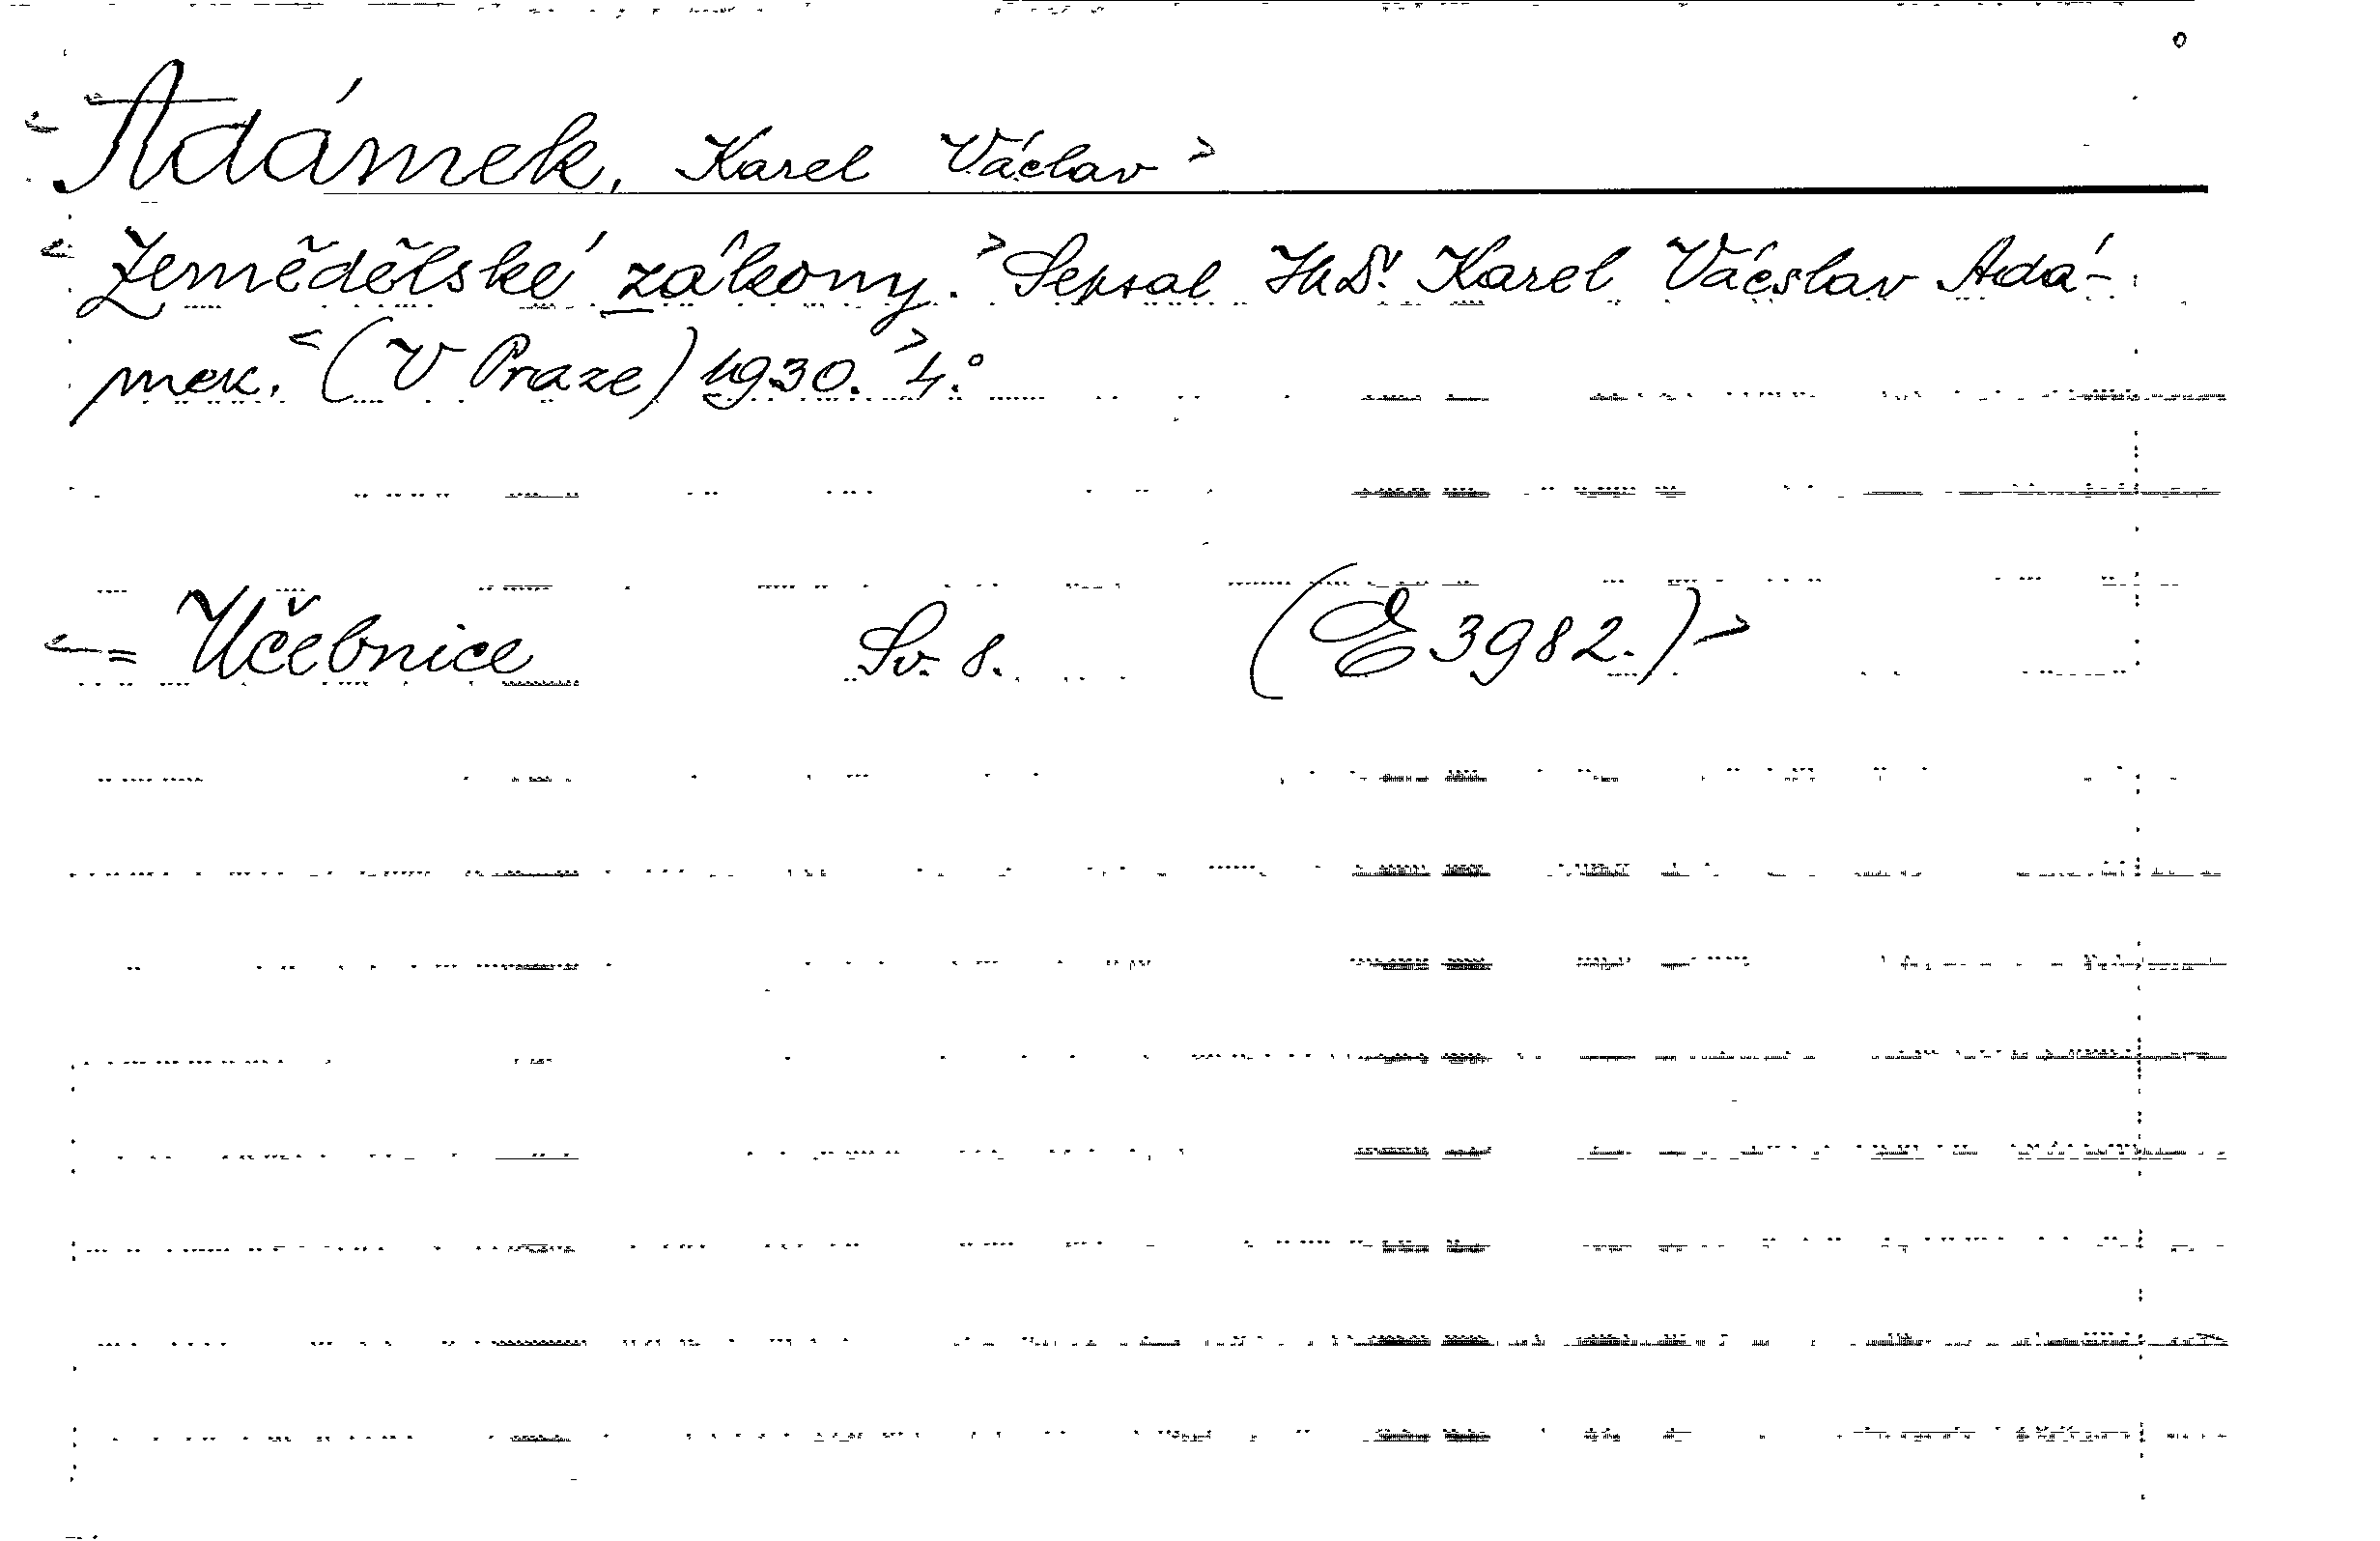 <Adámek, Karel Václav>
<Zemědělské zákony.> Sepsal JUDr. Karel Václav Adá-
mek. <(V Praze) 1930.> 4.°
<= Učebnice Sv. 8. (E 3982.)>